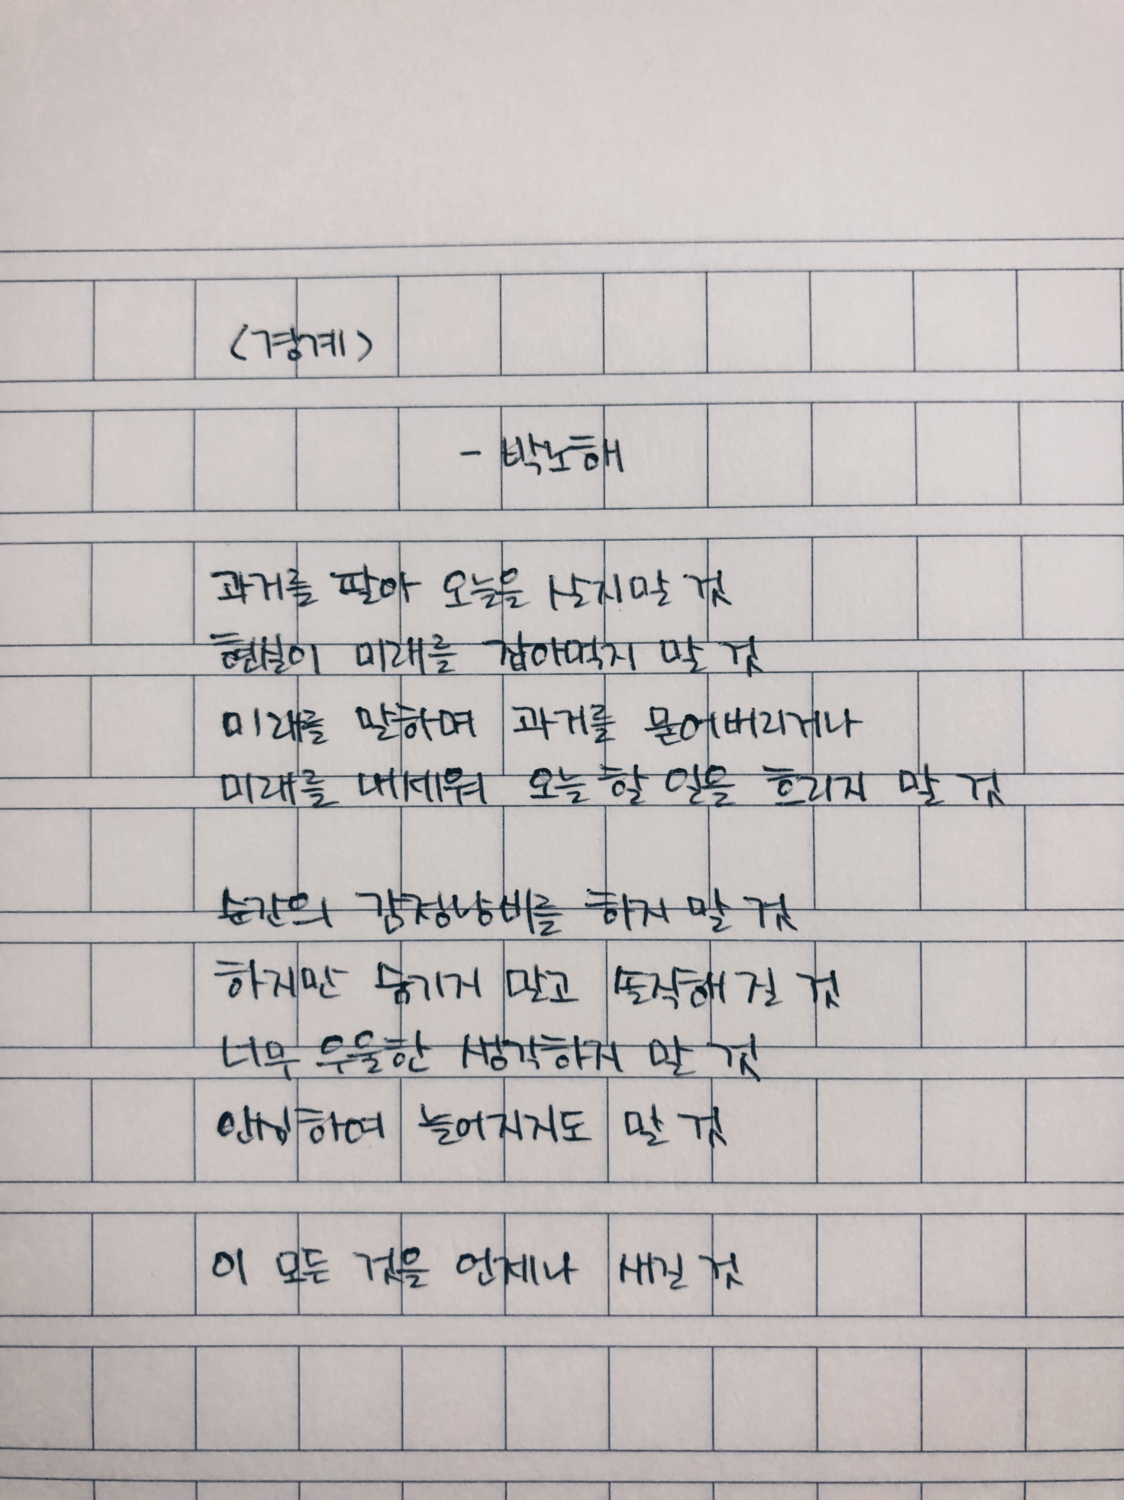 <경계>
- 박노해
과거를 팔아 오늘을 살지말 것
현실이 미래를 잡아먹지 말 것
미래를 말하며 과거를 묻어버리거나
미래를 내세워 오늘 할 일을 흐리지 말 것
순간의 감정낭비를 하지 말 것
하지만 숨기지 말고 또작해 질 것
너무 우울한 생각하지 말 것
안심하여 늘어지지도 말 것
이 모든 것을 언제나 새길 것